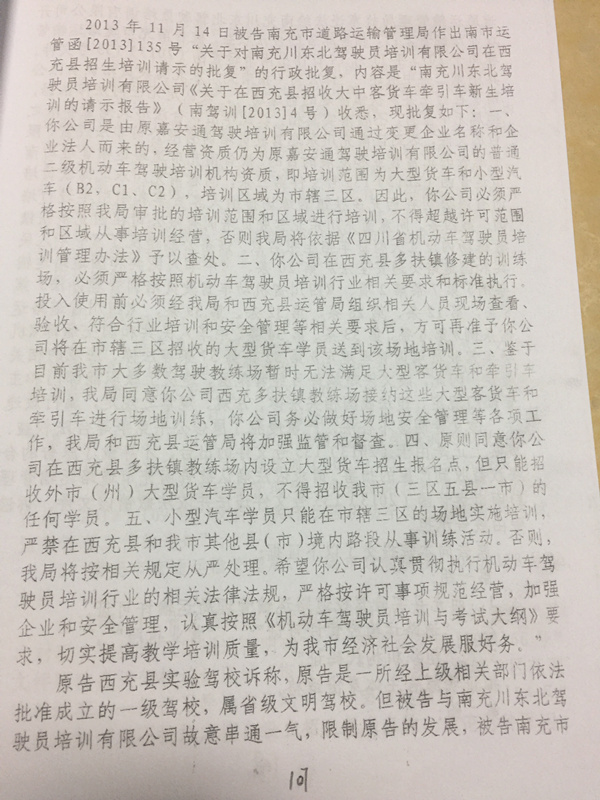 2013年11月14日被告南充市道路运输管理局作出南市运
管函[2013]135号“关于对南充川东北驾驶员培训有限公司在西
充县招生培训请示的批复”的行政批复，内容是“南充川东北驾
驶员培训有限公司《关于在西充县招收大中客货车牵引车新生培
训的请示报告》（南驾训[2013]4号）收悉，现批复如下：一、
你公司是由原嘉安通驾驶培训有限公司通过变更企业名称和企
业法人而来的，经营资质仍为原嘉安通驾驶培训有限公司的普通
二级机动车驾驶培训机构资质，即培训范围为大型货车和小型汽
车（B2、C1、C2），培训区域为市辖三区。因此，你公司必须严
格按照我局审批的培训范围和区域进行培训，不得超越许可范围
和区域从事培训经营，否则我局将依据《四川省机动车驾驶员培
训管理办法》予以查处。二、你公司在西充县多扶镇修建的训练
场，必须严格按照机动车驾驶员培训行业相关要求和标准执行。
投入使用前必须经我局和西充县运管局组织相关人员现场查看、
验收、符合行业培训和安全管理等相关要求后，方可再准予你公
司将在市辖三区招收的大型货车学员送到该场地培训。三、鉴于
目前我市大多数驾驶教练场暂时无法满足大型客货车和牵引车
培训，我局同意你公司西充多扶镇教练场接约这些大型客货车和
牵引车进行场地训练，你公司务必做好场地安全管理等各项工
作，我局和西充县运管局将加强监管和督查。四、原则同意你公
司在西充县多扶镇教练场内设立大型货车招生报名点，但只能招
收外市（州）大型货车学员，不得招收我市（三区五县一市）的
任何学员。五、小型汽车学员只能在市辖三区的场地实施培训，
严禁在西充县和我市其他县（市）境内路段从事训练活动。否则，
我局将按相关规定从严处理。希望你公司认真贯彻执行机动车驾
驶员培训行业的相关法律法规，严格按许可事项规范经营，加强
企业和安全管理，认真按照《机动车驾驶员培训与考试大纲》要
求，切实提高教学培训质量，为我市经济社会发展服好务。”
原告西充县实验驾校诉称，原告是一所经上级相关部门依法
批准成立的一级驾校，属省级文明驾校。但被告与南充川东北驾
驶员培训有限公司故意串通一气，限制原告的发展，被告南充市
107